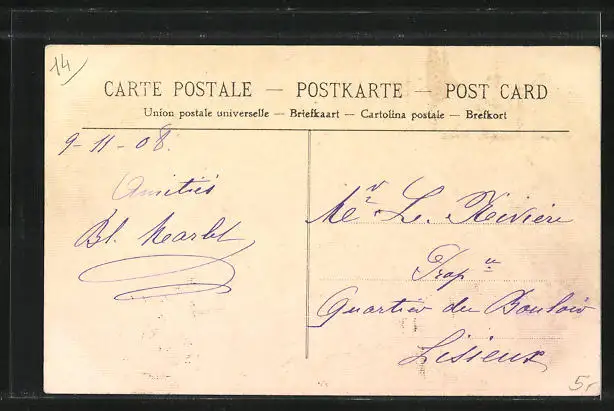 14
CARTE POSTALE — POSTKARTE — POST CARD
Union postale universelle — Briefkaart — Cartolina postale — Brefkort
9-11-08.
Amitiés
Bl.
Mr Le Rivière
Quartier du
Lisieux
5,